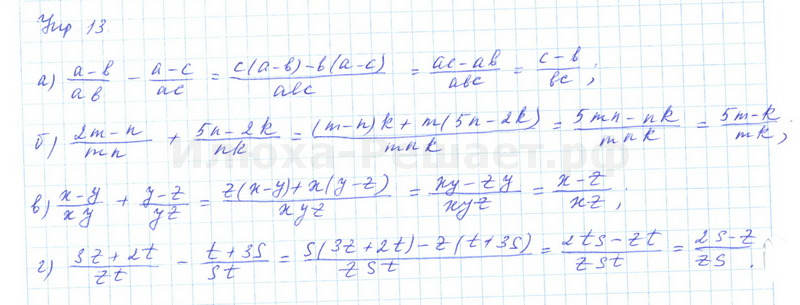 Упр 13
а) (a-b)/(ab) - (a-c)/(ac) = (c(a-b)-b(a-c))/(abc) = (ac-ab)/(abc) = (c-b)/(bc);
б) (2m-n)/(mn) + (5n-2k)/(nk) = ((m-n)k+m(5n-2k))/(mnk) = (5mn-nk)/(mnk) = (5m-k)/(mk);
Илюха-Решает.рф
в) (x-y)/(xy) + (y-z)/(yz) = (z(x-y)+x(y-z))/(xyz) = (xy-zy)/(xyz) = (x-z)/(xz);
г) (3z+2t)/(zt) - (t+3s)/(st) = (s(3z+2t)-z(t+3s))/(zst) = (2ts-zt)/(zst) = (2s-z)/(zs).